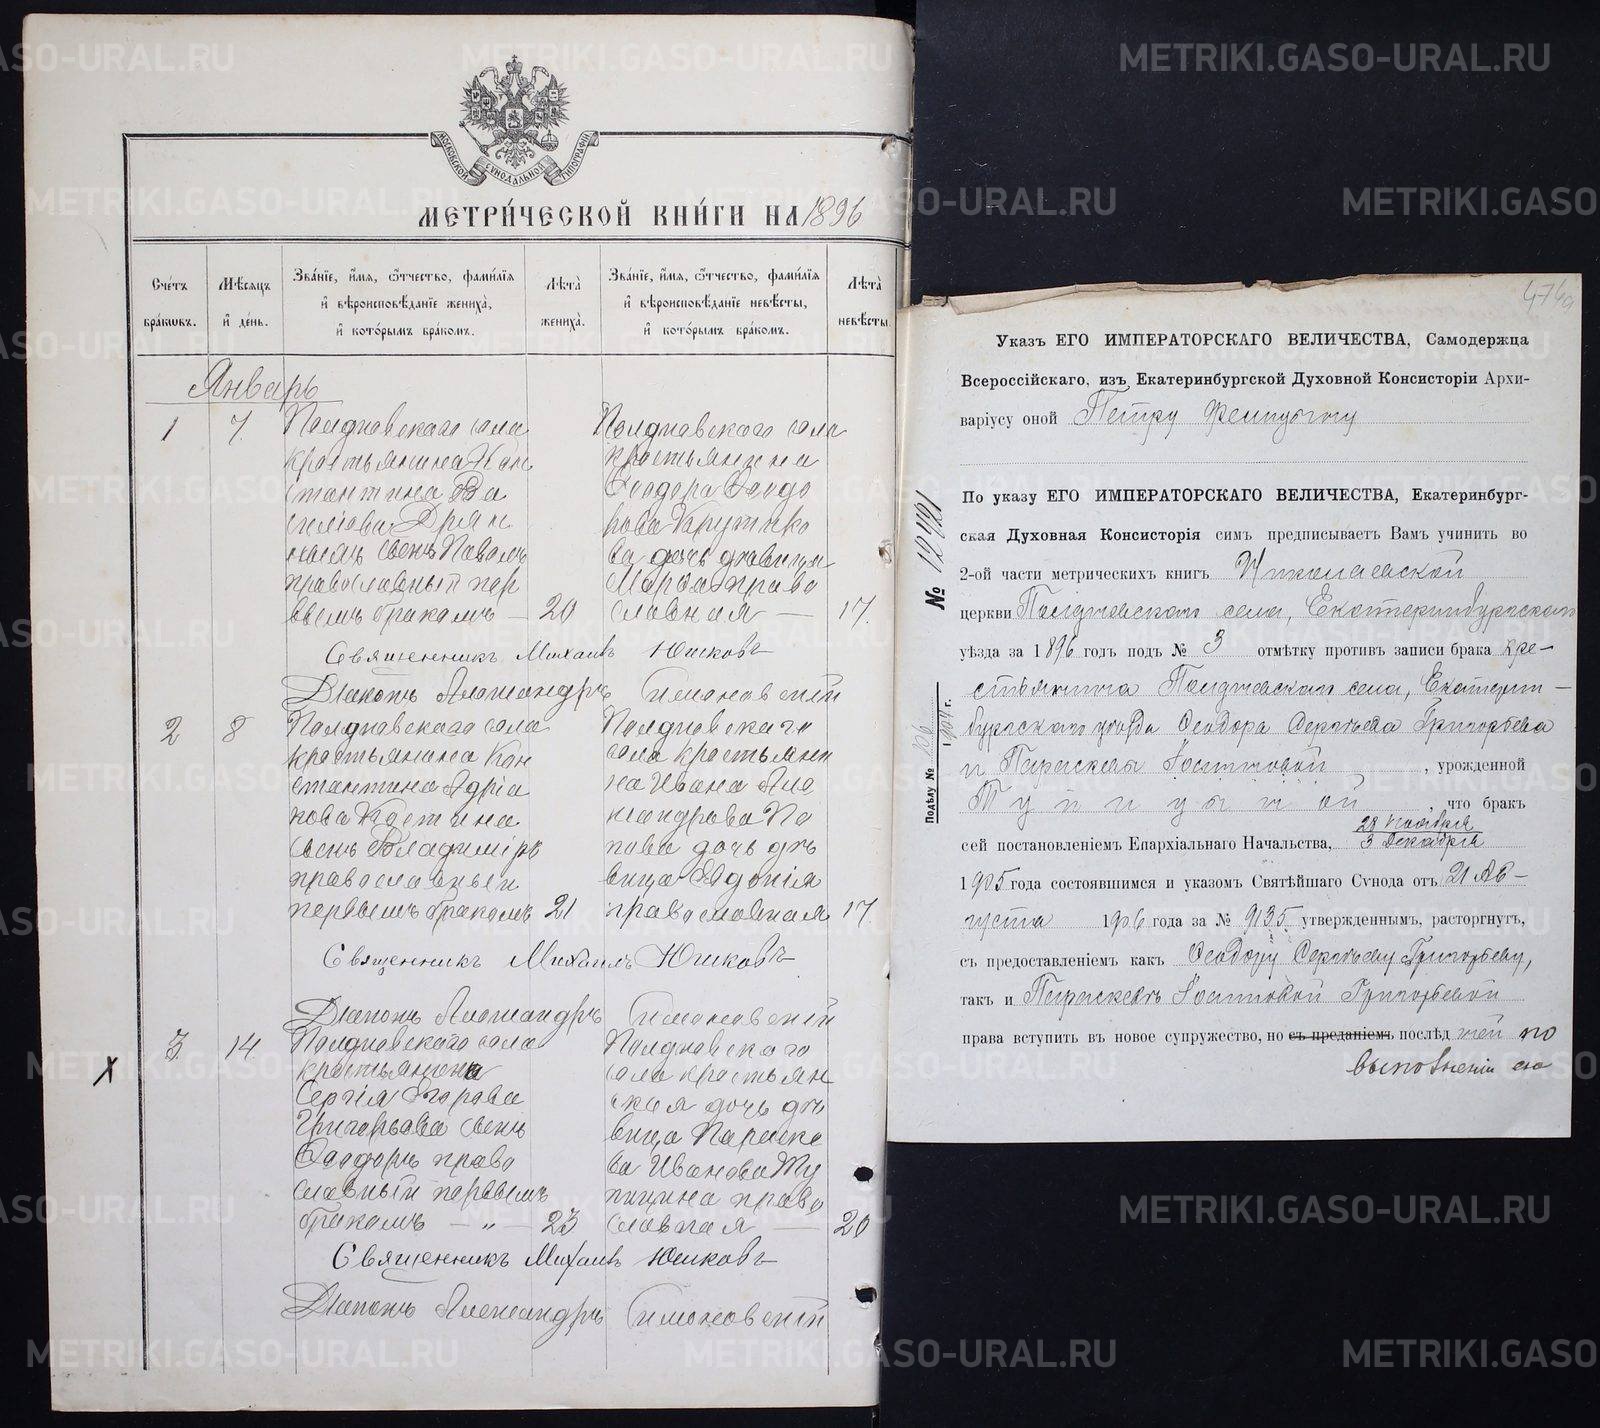 МОСКОВСКОЙ СѴНОДАЛЬНОЙ ТИПОГРАФІИ
МЕТРИ́ЧЕСКОЙ КНИ́ГИ НА 1896
Сче́тъ бра́кѡвъ.
Мѣ́сѧцъ и҆ де́нь.
Зва́нїе, и҆́мѧ, ѻ҆́тчество, фами́лїѧ и҆ вѣроисповѣ́данїе жениха̀, и҆ кото́рымъ бра́комъ.
Лѣ́та̀ жениха̀.
Зва́нїе, и҆́мѧ, ѻ҆́тчество, фами́лїѧ и҆ вѣроисповѣ́данїе невѣ́сты, и҆ кото́рымъ бра́комъ.
Лѣ́та̀ невѣ́сты.
Январь
1
7.
Полдневского села
крестьянина Кон
стантина Ва
сильева
сынъ Павелъ
православный пер
вымъ бракомъ —
20
Полдневского села
крестьянина
Ѳеодора Ѳеодо
рова Крутико
ва дочь девица
Марѳа право
славная —
17.
Священникъ Михаилъ Юшковъ
Діаконъ Александръ Симоновскій
2
8
Полдневского села
крестьянина Кон
стантина Адріа
нова Костина
сынъ Владиміръ
православный
первымъ бракомъ
21
Полдневского
села крестьяни
на Ивана Але
ксандрова По
пова дочь дѣ
вица Евдокія
православная
17.
Священникъ Михаилъ Юшковъ
Діаконъ Александръ Симоновскій
X
3.
14
Полдневского села
крестьянина
Сергія Егорова
Григорьева сынъ
Ѳеодоръ право
славный первымъ
бракомъ — „ —
23
Полдневского
села крестьян
ская дочь дѣ
вица Параске
ва Иванова Ту
пицина право
славная —
20
Священникъ Михаилъ Юшковъ
Діаконъ Александръ Симоновскій
474а
Указъ ЕГО ИМПЕРАТОРСКАГО ВЕЛИЧЕСТВА, Самодержца
Всероссійскаго, изъ Екатеринбургской Духовной Консисторіи Архи-
варіусу оной Петру
По указу ЕГО ИМПЕРАТОРСКАГО ВЕЛИЧЕСТВА, Екатеринбург-
ская Духовная Консисторія симъ предписываетъ Вамъ учинить во
2-ой части метрическихъ книгъ Николаевской
церкви Полдневского села, Екатеринбургского
уѣзда за 1896 годъ подъ № 3 отмѣтку противъ записи брака кре-
стьянина Полдневского села, Екатерин-
бургского уѣзда Ѳеодора Сергѣева Григорьева
и Параскевы Іоанновой, урожденной
Тупицыной, что бракъ
сей постановленіемъ Епархіальнаго Начальства, 28 Ноября 3 Декабря
1905 года состоявшимся и указомъ Святѣйшаго Сѵнода отъ 21 Ав-
густа 1906 года за № 9135 утвержденнымъ, расторгнутъ,
съ предоставленіемъ какъ Ѳеодору Сергѣеву Григорьеву,
такъ и Параскевѣ Іоанновой Григорьевой
права вступить въ новое супружество, но съ преданіемъ послѣдней по
выполненіи ею
№ 12421
Подѣлу № 106 1904 г.
METRIKI.GASO-URAL.RU